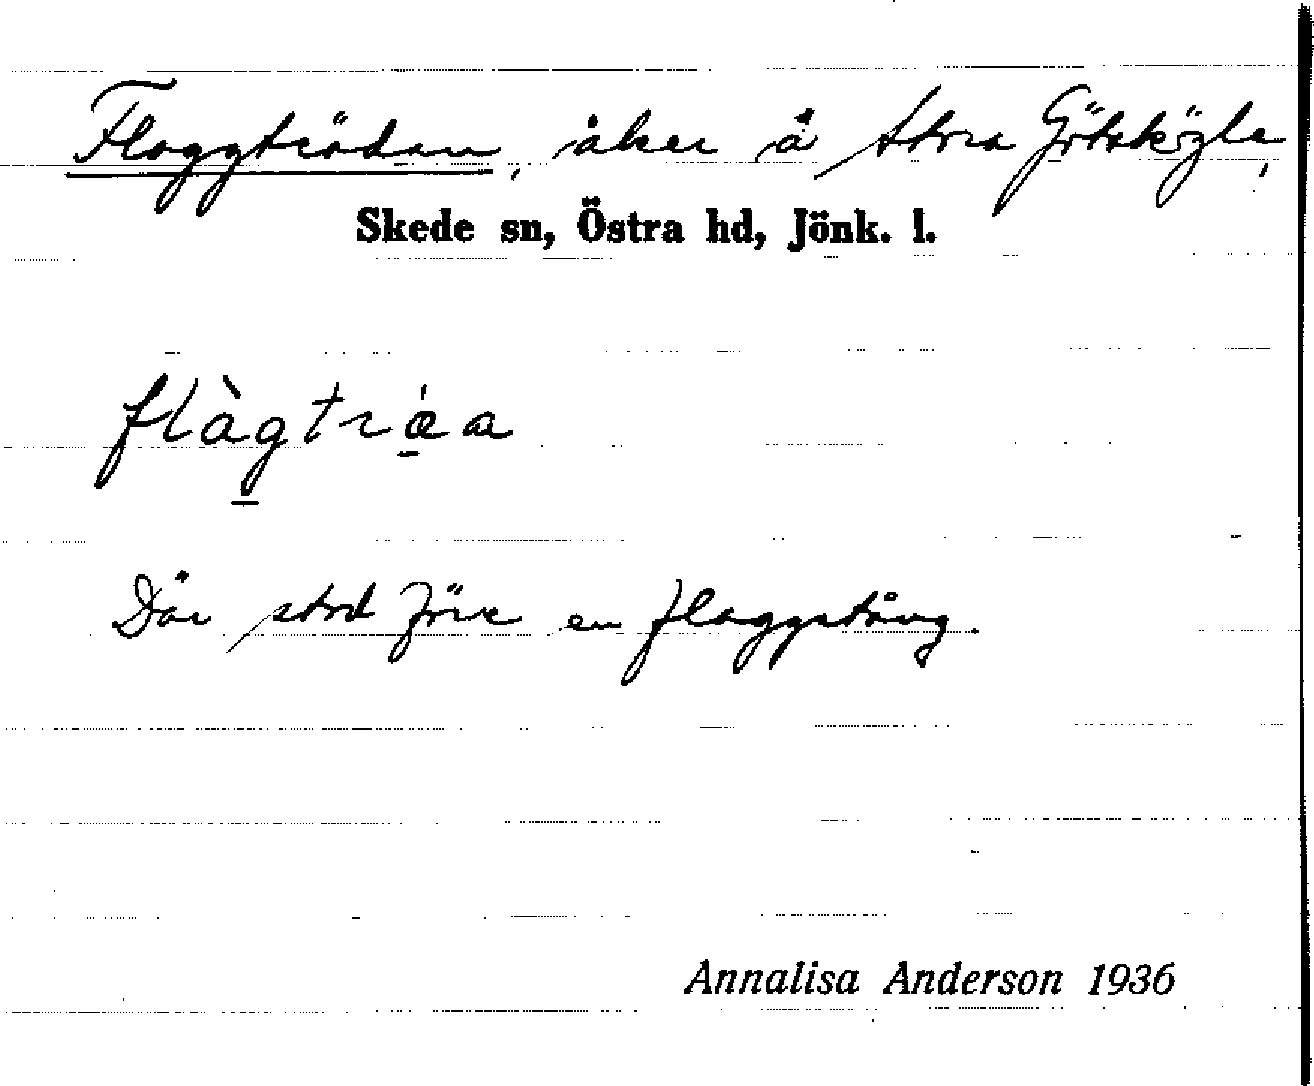 Flaggträdan, åker å Stora Götskögle,
Skede sn, Östra hd, Jönk. l.
flàgtráa
Där stod förr en flaggstång.
Annalisa Anderson 1936